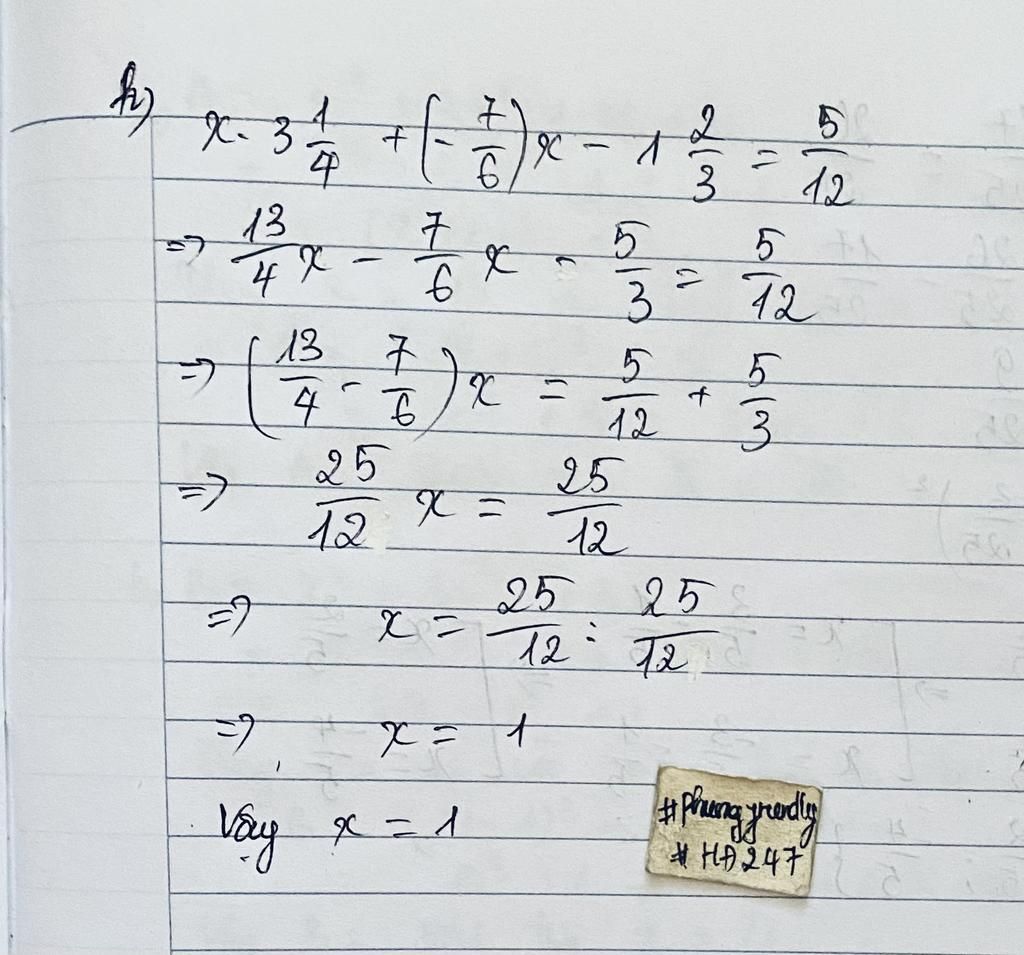 h)
x · 3 1/4 + (- 7/6) x - 1 2/3 = 5/12
=> 13/4 x - 7/6 x - 5/3 = 5/12
=> (13/4 - 7/6) x = 5/12 + 5/3
=> 25/12 x = 25/12
=> x = 25/12 : 25/12
=> x = 1
Vậy x = 1
# HĐ247